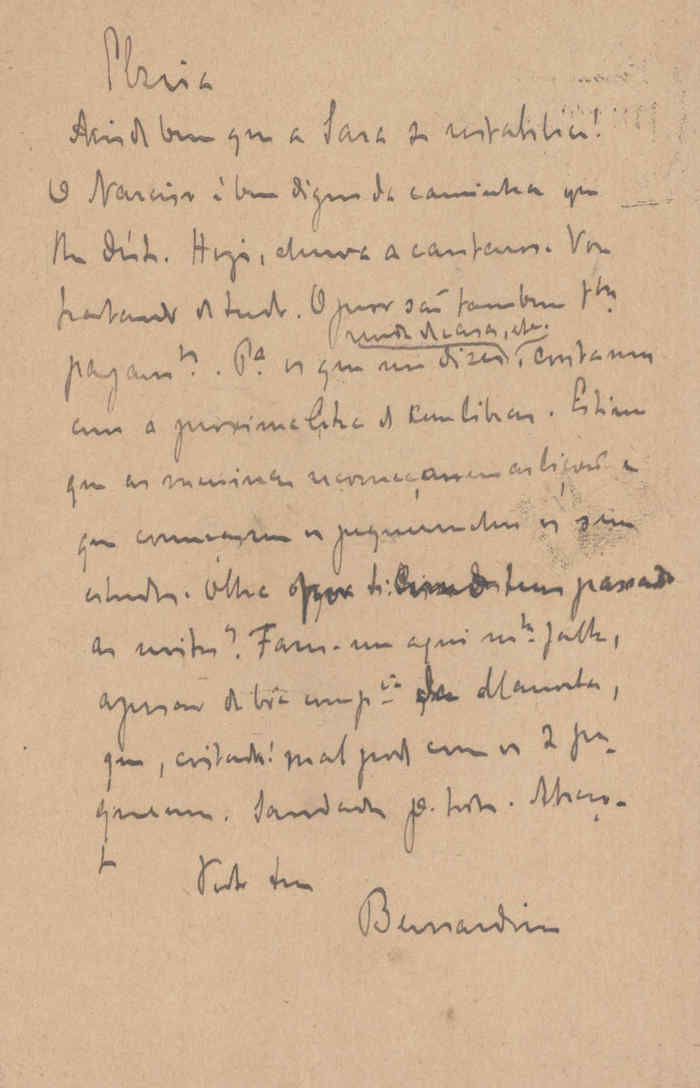 Elzira
Ainda bem que a Sara se restabelece!
O Narciso é bem digno da caminha que
lhe déste. Hoje, chuva a cantaros. Vou
tratando de tudo. O peor são tambem
renda de casa, etc.
pagam.tos. P.a os que me dizes, contanto
com a proxima letra de cem libras. Estimo
que as meninas recomeçassem as lições e
que começassem os pequeninos os seus
estudos. Olha tens passado
as noites? Fazes-me aqui m.ta falta,
apesar de bôa comp.ia da Manuela,
que, coitada! mal pode com os 2 pe-
quenos. Saudades p. todos. Abraço-
te
Todo teu
Bernardino